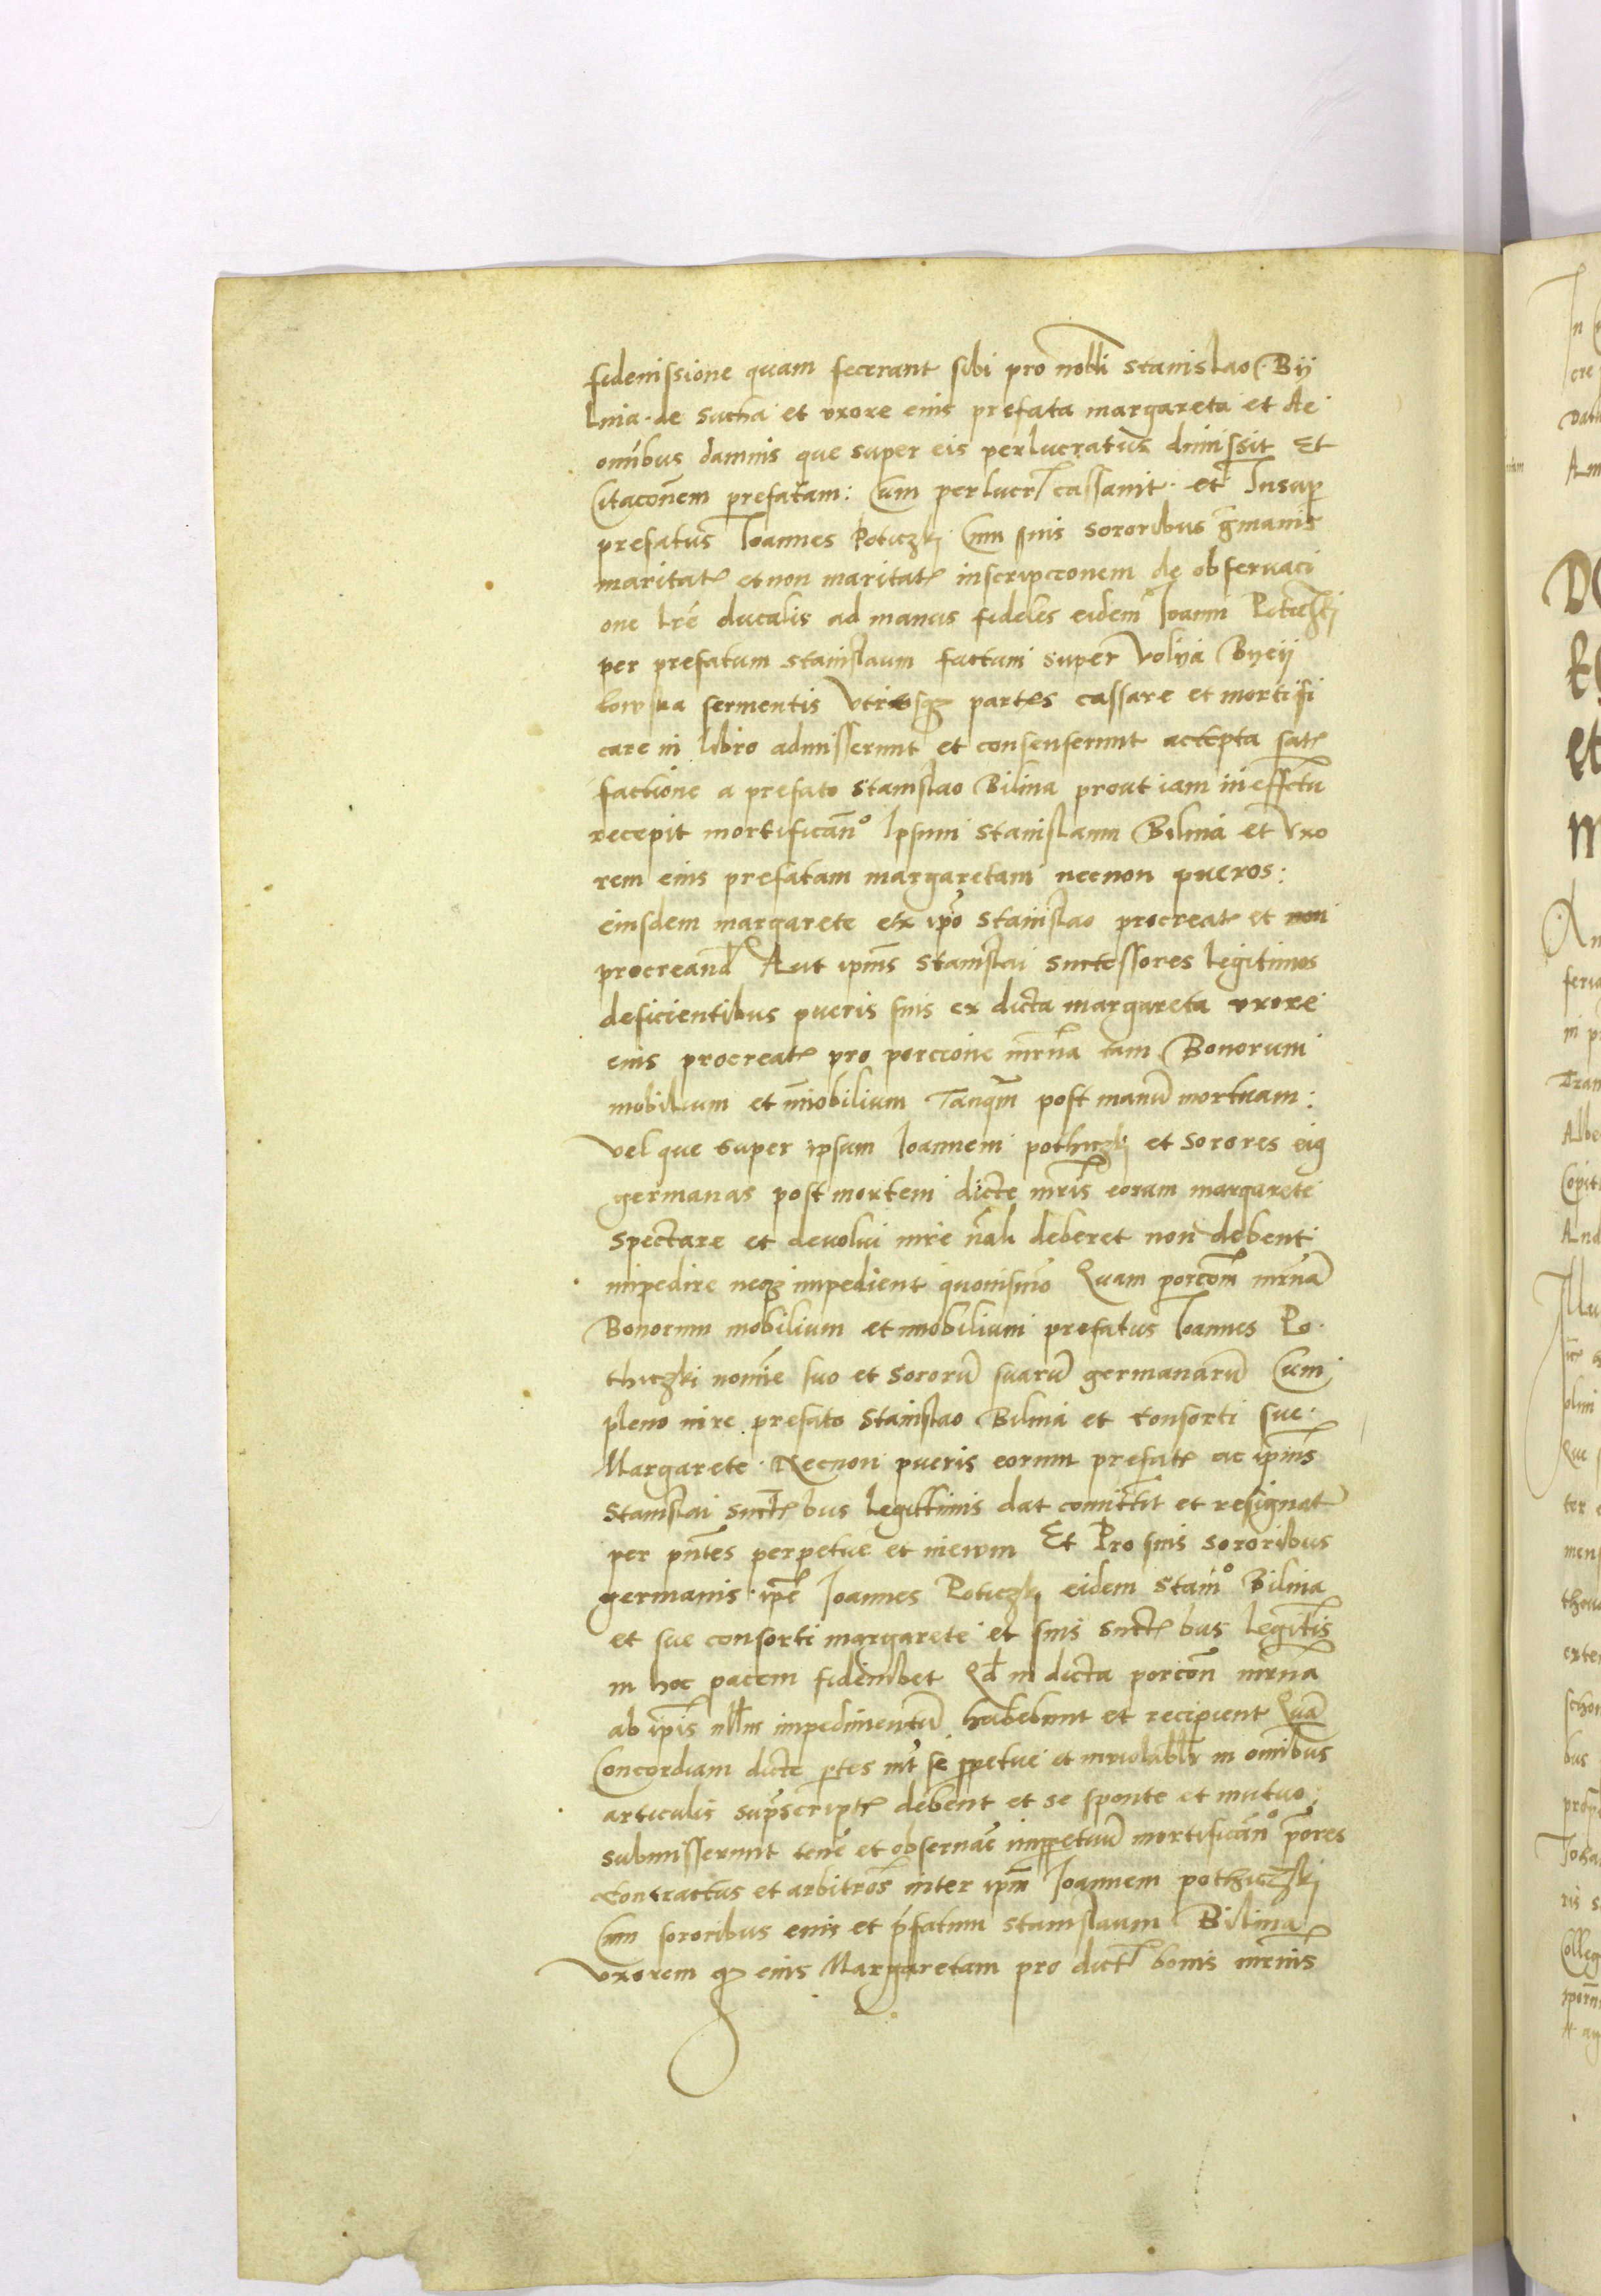 fideiussione quam fecerant sibi pro nobli Stanislao Bij
lina de Sucha et vxore eius prefata margareta et de
omībus damnis que super eis perlucratus dimissit Et
Citacōnem prefatam: Cum perlucr̄ cassauit et Insup
prefatus Ioannes Poticzki Cum suis sororibus ḡmanis
maritat̄ et non maritat̄ inscripcionem de obseruaci
one lrē ducalis ad manus fideles eidem Ioanni Poticzki
per prefatum Stanislaum factam super Volija Bijeij
kowska fermentis vtriusq partes cassare et mortifi
care in libro admisserunt et consenserunt accepta satis
factione a prefato Stanislao Bilina prout iam in effctu
recepit mortificān° Ipsum Stanislaum Bilina et vxo
rem eius prefatam margaretam necnon pueros:
eiusdem margarete ex ip̄o Stanislao procreat̄ et non
procreand̄ Aut ipīus Stanislai successores legitimos
deficientibus pueris suis ex dicta margareta vxore
eius procreat̄ pro porcione mr̄na tam Bonorum
mobilium et īmobilium Tanq̄m post manū mortuam:
vel que super ipsum Ioannem pothiczki et sorores eiq
germanas post mortem dicte mr̄is eoram margarete
spectare et deuolui iure n̄ali deberet non debent
impedire neq impedient quouismo Quam porcōm mr̄nā
Bonorum mobilium et immobilium prefatus Ioannes Po
thiczki nomīe suo et sororū suarū germanarū Cum
pleno iure prefato Stanislao Bilina et consorti sue
Margarete Necnon pueris eorum prefat̄ ac ipīus
Stanislai succ̄bus legittimis dat comittit et resignat
per pn̄tes perpetue et ineuum Et Pro suis sororibus
germanis ip̄e Ioannes Poticzki eidem Stanī° Bilina
et sue consorti margarete et suis succ̄bus legitīs
in hoc pacem fideiubet Qd̄ in dicta porcōn mr̄na
ab ip̄is nllm impedimentū habebunt et recipient Quā
Concordiam dicte p̄tes int̄ se ppetue et inuiolablr in omībus
articulis sup̄script̄ debent et se sponte et mutuo
submisserunt tenē et obseruāe impptuū mortificān° p̄ores
Contractus et arbitros inter ip̄m Ioannem pothiczki
Cum sororibus eius et p̄fatum Stanislaum Bilina
vxorem q eius Margaretam pro dict̄ bonis mr̄nis